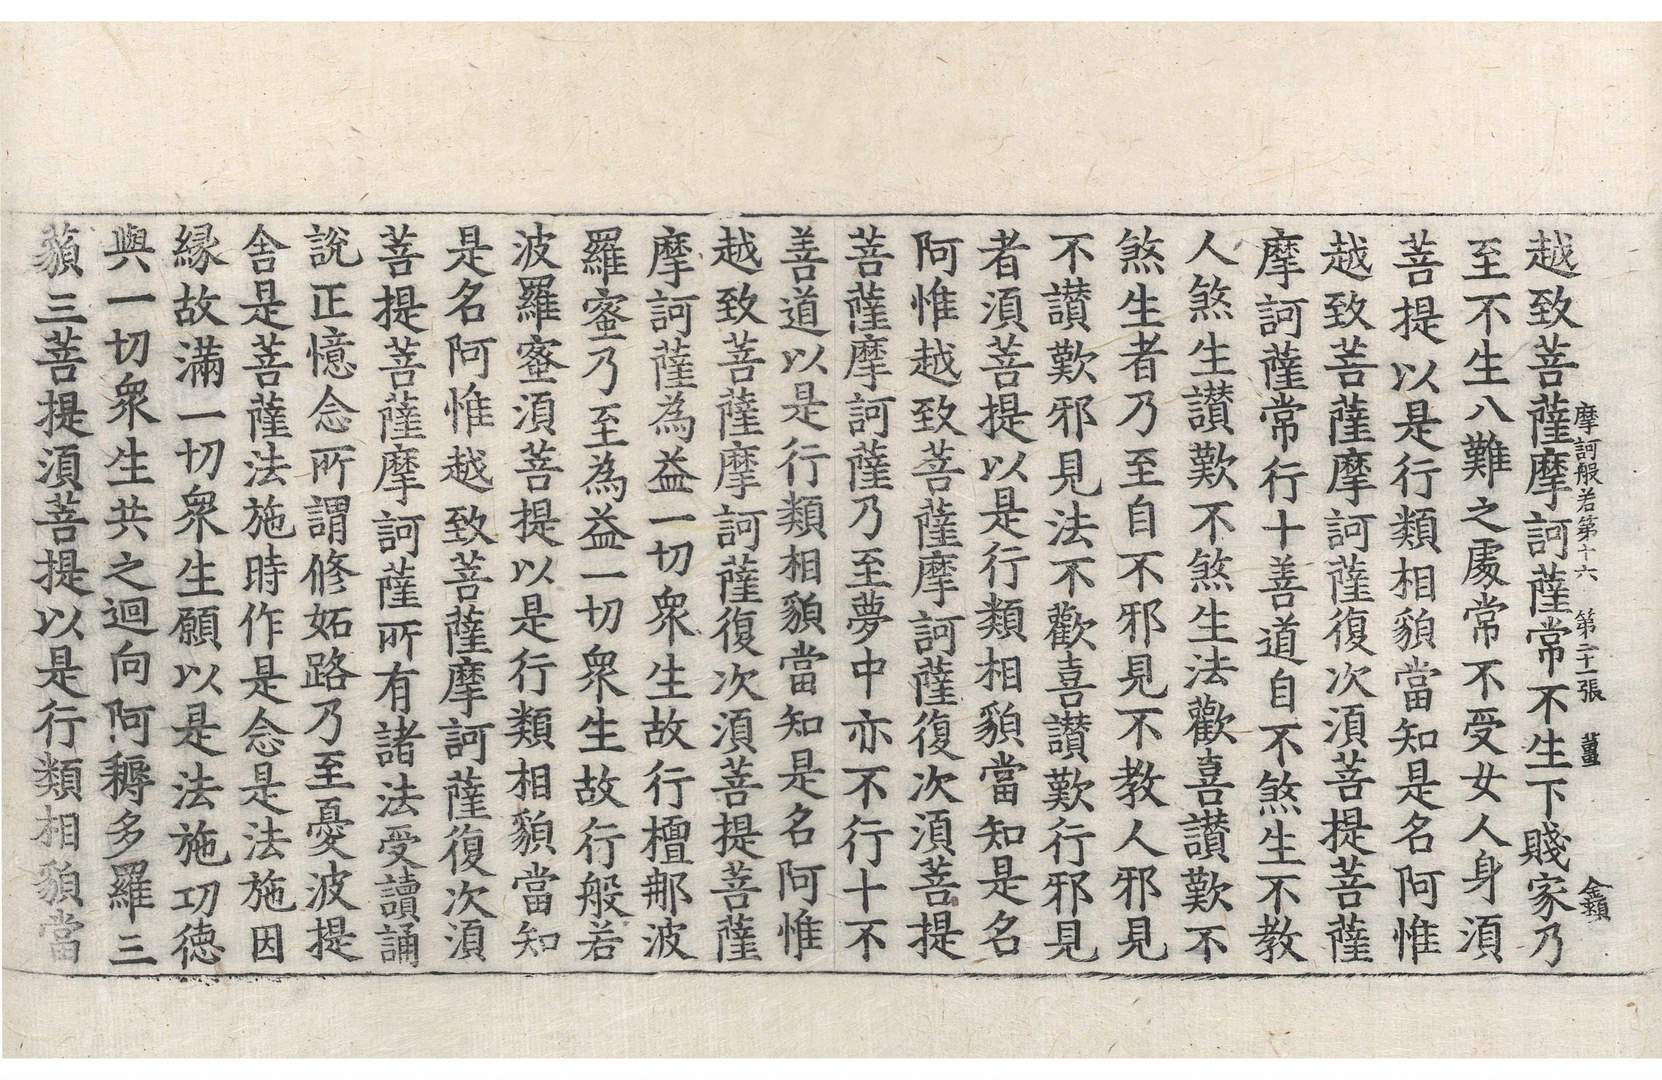 摩訶般若第十六 第二十一張 薑
越致菩薩摩訶薩常不生下賤家乃
至不生八難之處常不受女人身須
菩提以是行類相貌當知是名阿惟
越致菩薩摩訶薩復次須菩提菩薩
摩訶薩常行十善道自不煞生不教
人煞生讃歎不煞生法歡喜讃歎不
煞生者乃至自不邪見不教人邪見
不讃歎邪見法不歡喜讃歎行邪見
者須菩提以是行類相貌當知是名
阿惟越致菩薩摩訶薩復次須菩提
菩薩摩訶薩乃至夢中亦不行十不
善道以是行類相貌當知是名阿惟
越致菩薩摩訶薩復次須菩提菩薩
摩訶薩為益一切衆生故行檀那波
羅蜜乃至為益一切衆生故行般若
波羅蜜須菩提以是行類相貌當知
是名阿惟越致菩薩摩訶薩復次須
菩提菩薩摩訶薩所有諸法受讀誦
說正憶念所謂修妬路乃至憂波提
舍是菩薩法施時作是念是法施因
縁故滿一切衆生願以是法施功徳
與一切衆生共之迴向阿耨多羅三
藐三菩提須菩提以是行類相貌當